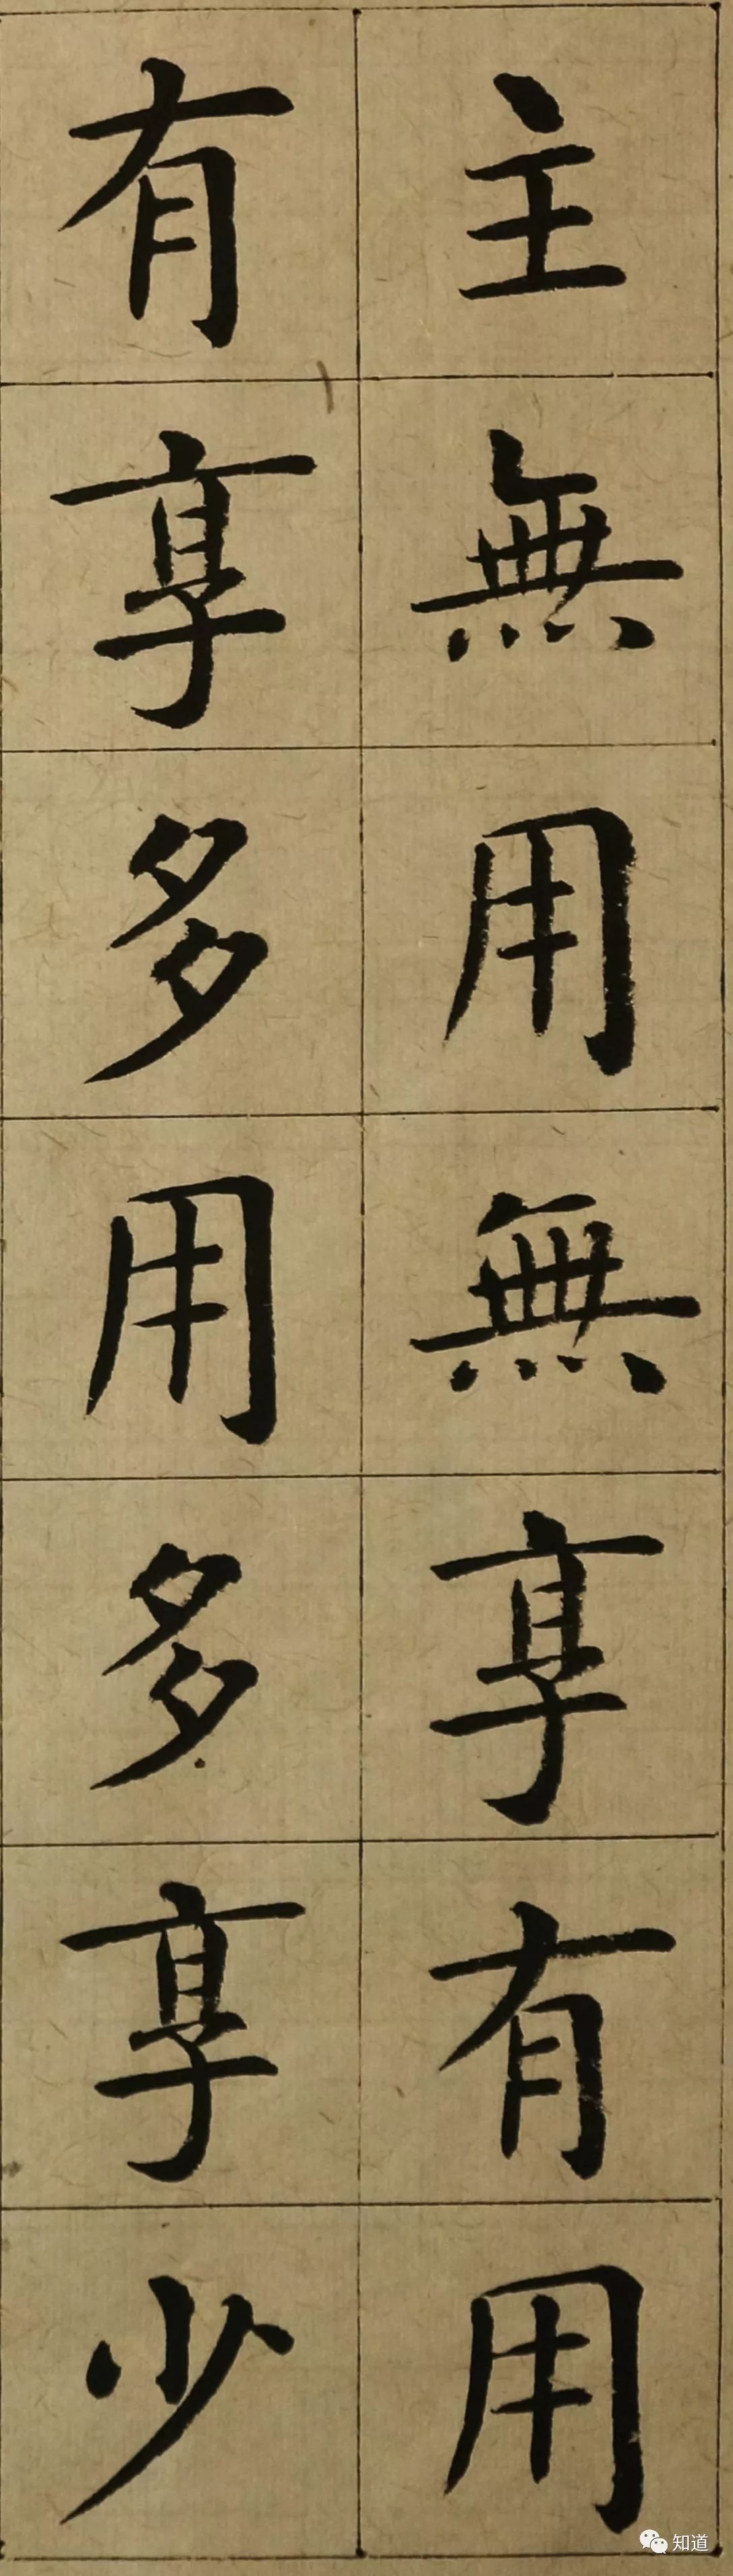 主無用無享有用
有享多用多享少
知道